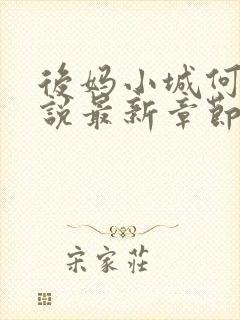 後妈小城何
說最新章節
宋家莊